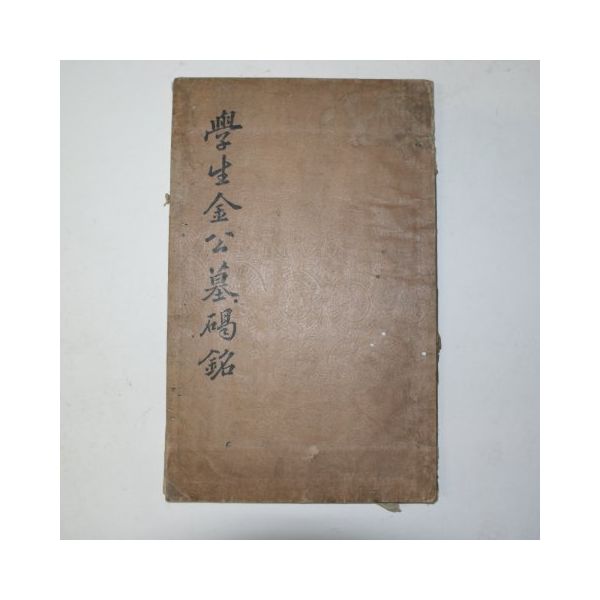 學生金公墓碣銘